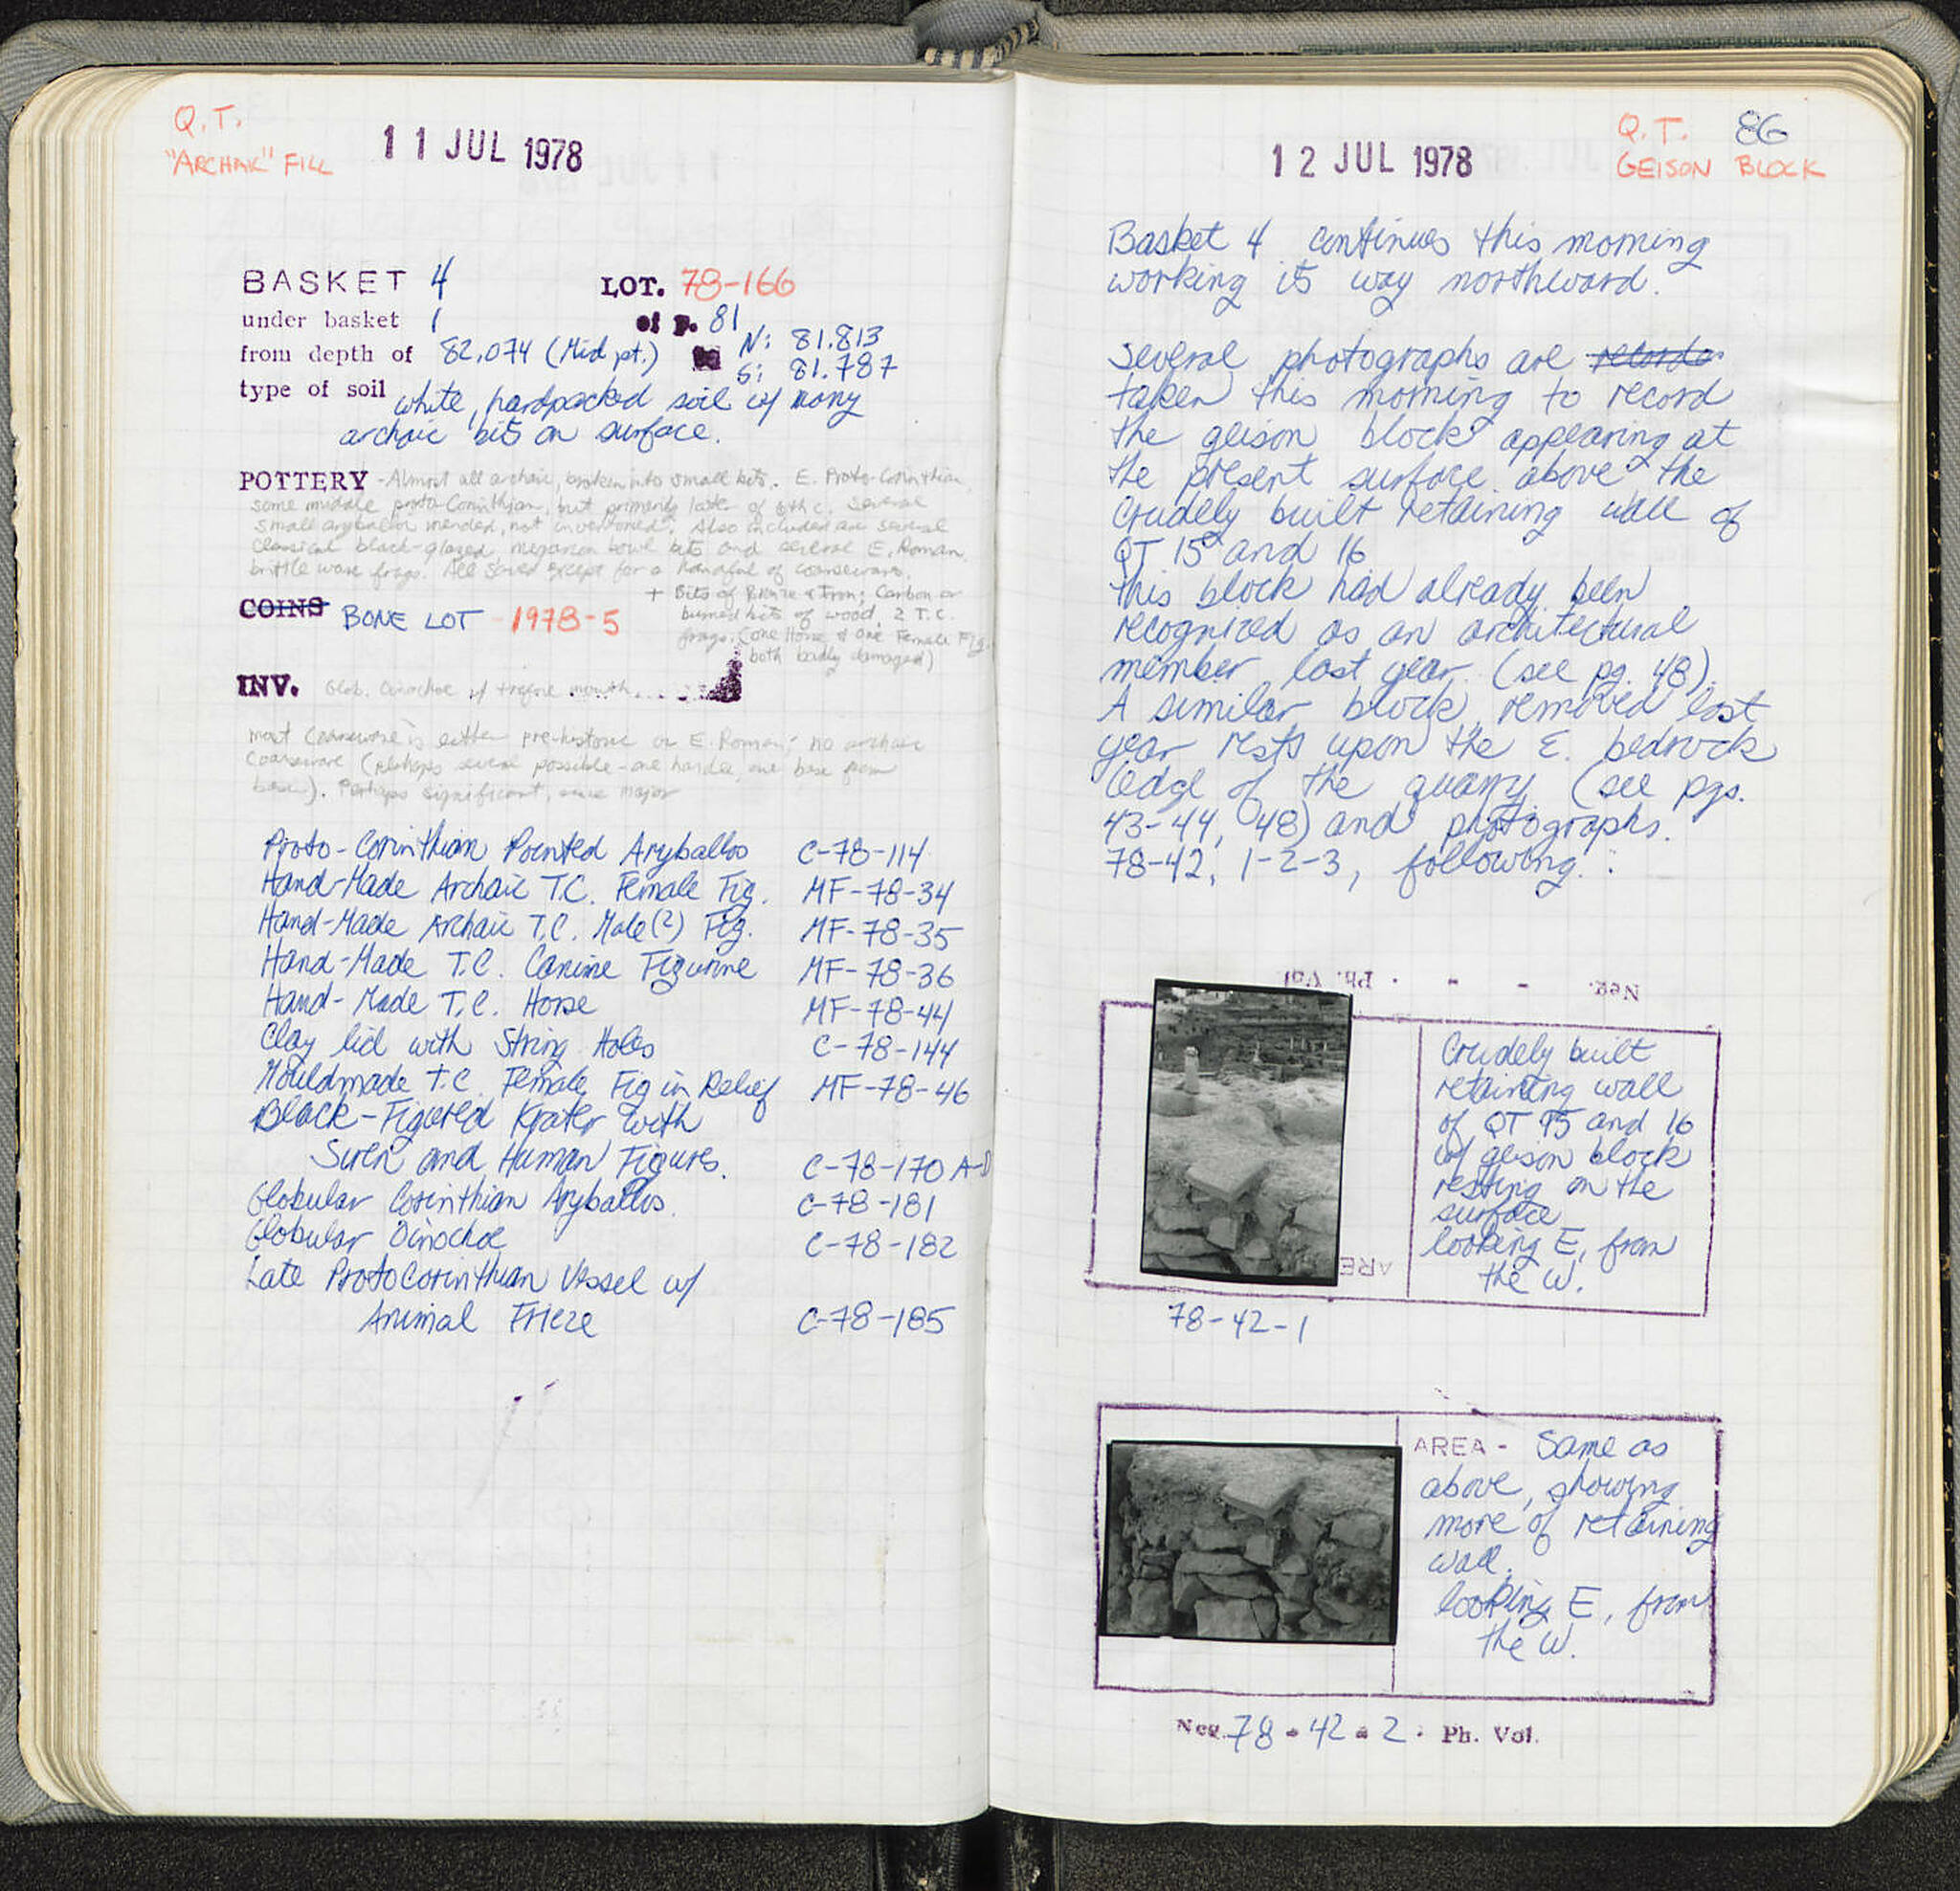 Q.T.
"ARCHAIC" FILL
11 JUL 1978
BASKET 4 LOT. 78-166
under basket 1 of p. 81
from depth of 82.074 (Mid pt.) N: 81.813
S: 81.787
type of soil white, hardpacked soil w/ many
archaic bits on surface.
POTTERY - Almost all archaic, broken into small bits. E. Proto-Corinthian,
some middle proto-Corinthian, but primarily later of 6th c. Several
small aryballoi mended, not inventoried. Also included are several
Classical black-glazed, megarian bowl bits and several E. Roman
brittle ware frags. All saved except for a handful of coarseware.
+ Bits of Bronze & Iron; Carbon or
burned bits of wood, 2 T.C.
frags. (one Horse & one Female Fig.
both badly damaged)
COINS BONE LOT - 1978-5
INV. Glob. Oinochoe w/ trefoil mouth
most coarseware is either pre-historic or E. Roman; no archaic
coarseware (perhaps several possible - one handle, one base from
). Perhaps significant, since major
Proto-Corinthian Pointed Aryballos C-78-114
Hand-Made Archaic T.C. Female Fig. MF-78-34
Hand-Made Archaic T.C. Male(?) Fig. MF-78-35
Hand-Made T.C. Canine Figurine MF-78-36
Hand-Made T.C. Horse MF-78-44
Clay lid with String Holes C-78-144
Mouldmade T.C. Female Fig in Relief MF-78-46
Black-Figured Krater with
Siren and Human Figures. C-78-170 A-D
Globular Corinthian Aryballos. C-78-181
Globular Oinochoe C-78-182
Late ProtoCorinthian Vessel w/
Animal Frieze C-78-185
Q.T. 86
GEISON BLOCK
12 JUL 1978
Basket 4 continues this morning
working its way northward.
Several photographs are recorde
taken this morning to record
the geison block appearing at
the present surface above the
crudely built retaining wall of
QT 15 and 16
This block had already been
recognized as an architectural
member last year. (see pg. 48).
A similar block, removed last
year rests upon the E. bedrock
ledge of the quarry (see pgs.
43-44, 48) and photographs.
78-42, 1-2-3, following. :
Neg. - - . Ph. Vol.
Crudely built
retaining wall
of QT 15 and 16
w/ geison block
resting on the
surface
looking E, from
the W.
AREA
78-42-1
AREA - Same as
above, showing
more of retaining
wall.
looking E, from
the W.
Neg. 78 - 42 - 2 . Ph. Vol.